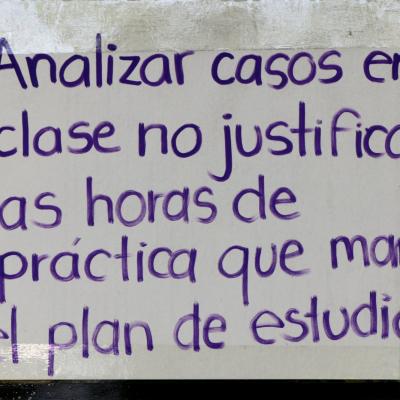 Analizar casos en
clase no justifica
las horas de
práctica que man
el plan de estudio